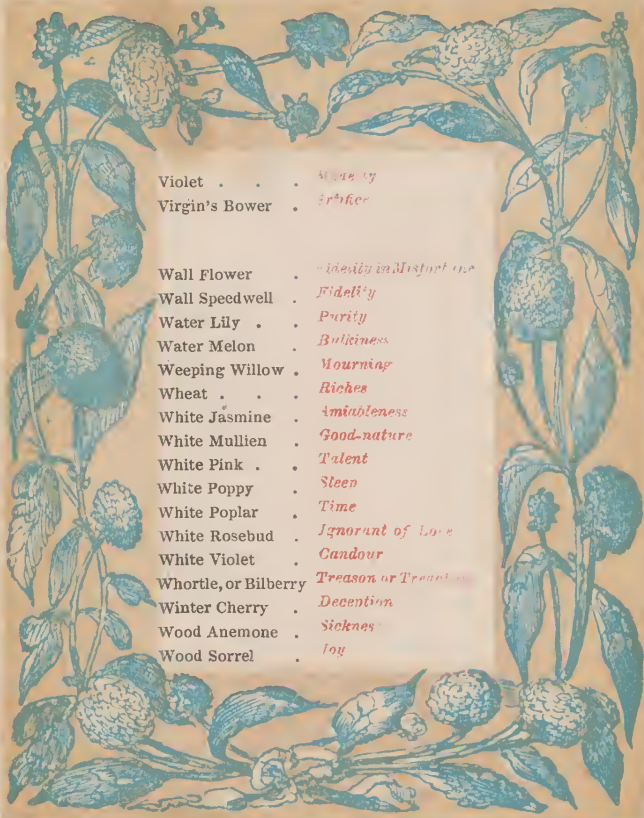 Violet . . . Modesty
Virgin's Bower . Artifice
Wall Flower . Fidelity in Misfortune
Wall Speedwell . Fidelity
Water Lily . . Purity
Water Melon . Bulkiness
Weeping Willow . Mourning
Wheat . . . Riches
White Jasmine . Amiableness
White Mullien . Good-nature
White Pink . . Talent
White Poppy . Sleep
White Poplar . Time
White Rosebud . Ignorant of Love
White Violet . Candour
Whortle, or Bilberry Treason or
Winter Cherry . Deception
Wood Anemone . Sickness
Wood Sorrel . Joy